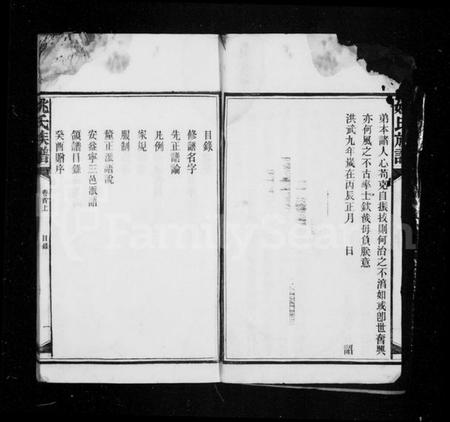 弟本諸人心苟克自振拔則何治之不濟如或卽世舊興
亦何風之不古率士欽哉毋負朕意
洪武九年歲在丙辰正月 日 詔
目錄
修譜名字
先正譜論
凡例
家規
服制
釐正派語說
安益寧三邑派語
領譜目錄
癸酉贈序
姚氏族譜
卷首上
目錄
FamilySearch